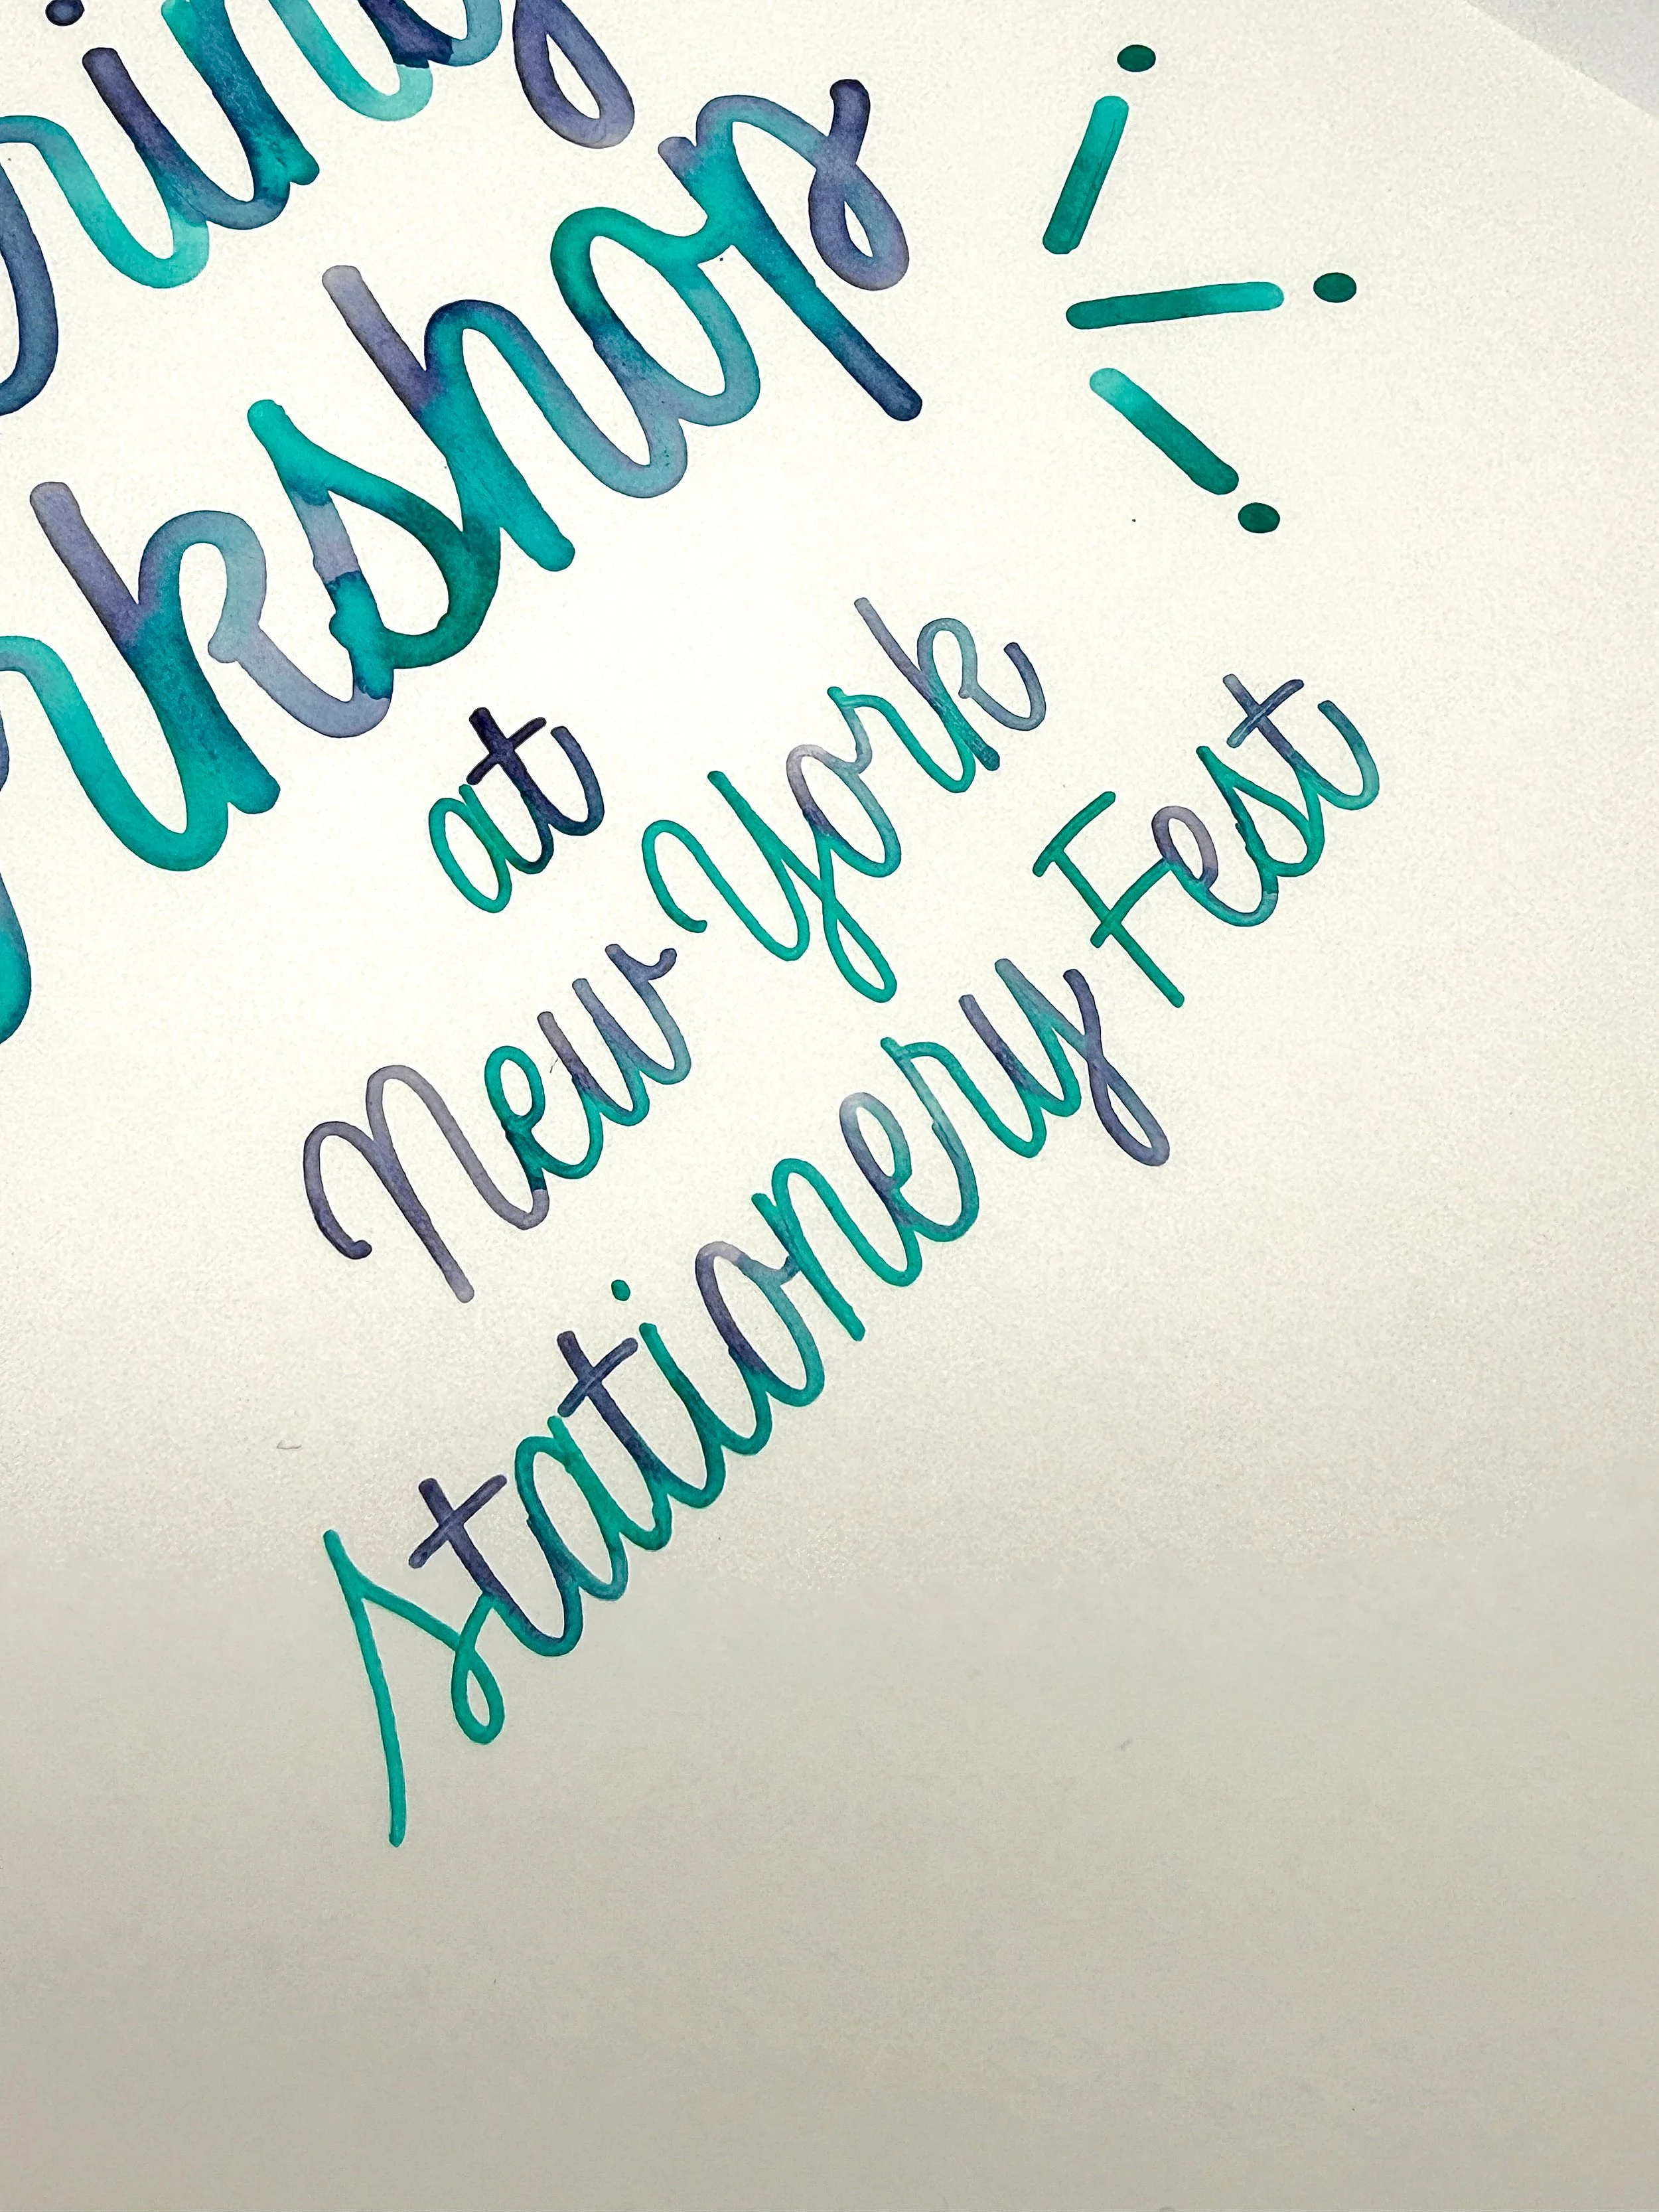 ring
rkshop
at
New York
stationery Fest